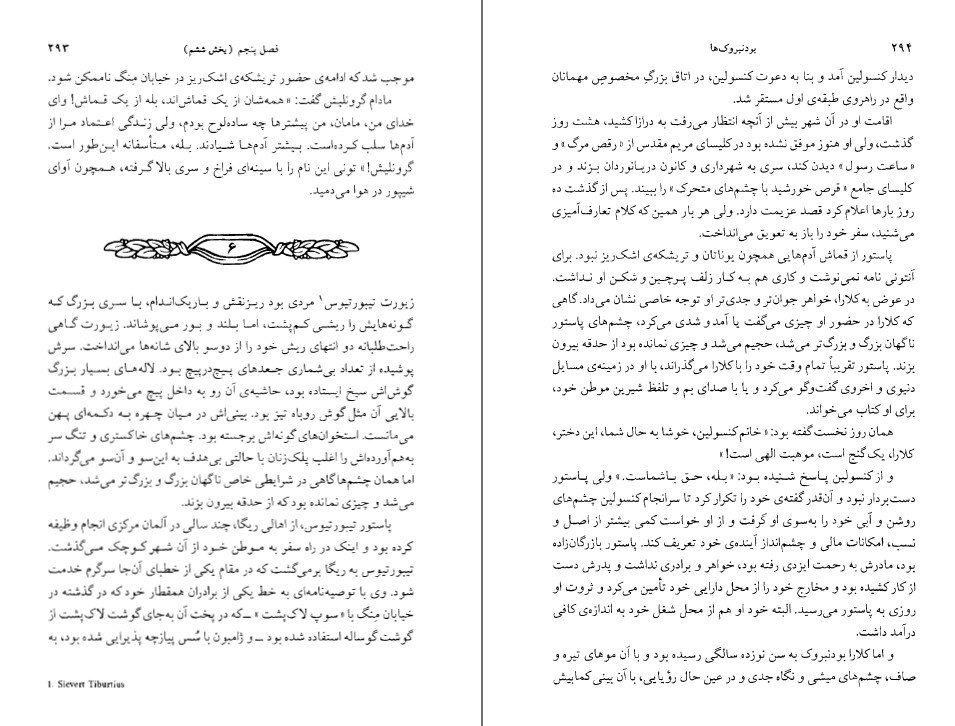 فصل پنجم (بخش ششم)
۲۹۳
موجب شد که ادامه‌ی حضور تریشکه‌ی اشک‌ریز در خیابان مِنگ ناممکن شود.
مادام گرونلیش گفت: «همه‌شان از یک قماش‌اند، بله از یک قماش! وای
خدای من، مامان، من پیشترها چه ساده‌لوح بودم، ولی زندگی اعتماد مرا از
آدم‌ها سلب کرده‌است. بیشتر آدم‌ها شیادند. بله، متأسفانه این‌طور است.
گرونلیش!» تونی این نام را با سینه‌ای فراخ و سری بالاگرفته، همچون آوای
شیپور در هوا می‌دمید.
۶
زیورت تیبورتیوس۱ مردی بود ریزنقش و باریک‌اندام، با سری بزرگ که
گونه‌هایش را ریشی کم‌پشت، اما بلند و بور می‌پوشاند. زیورت گاهی
راحت‌طلبانه دو انتهای ریش خود را از دوسو بالای شانه‌ها می‌انداخت. سرش
پوشیده از تعداد بی‌شماری جعدهای پیچ‌درپیچ بود. لاله‌های بسیار بزرگ
گوش‌اش سیخ ایستاده بود، حاشیه‌ی آن رو به داخل پیچ می‌خورد و قسمت
بالایی آن مثل گوش روباه تیز بود. بینی‌اش در میان چهره به دکمه‌ای پهن
می‌مانست. استخوان‌های گونه‌اش برجسته بود. چشم‌های خاکستری و تنگ سر
به‌هم‌آورده‌اش را اغلب پلک‌زنان با حالتی بی‌هدف به این‌سو و آن‌سو می‌گرداند.
اما همان چشم‌ها گاهی در شرایطی خاص ناگهان بزرگ و بزرگ‌تر می‌شد، حجیم
می‌شد و چیزی نمانده بود که از حدقه بیرون بزند.
پاستور تیبورتیوس، از اهالی ریگا، چند سالی در آلمان مرکزی انجام وظیفه
کرده بود و اینک در راه سفر به موطن خود از آن شهر کوچک می‌گذشت.
تیبورتیوس به ریگا برمی‌گشت که در مقام یکی از خطبای آن‌جا سرگرم خدمت
شود. وی با توصیه‌نامه‌ای به خط یکی از برادران همقطار خود که در گذشته در
خیابان مِنگ با «سوپ لاک‌پشت» ــ که در پخت آن به‌جای گوشت لاک‌پشت از
گوشت گوساله استفاده شده بود ــ و ژامبون با سُس پیازچه پذیرایی شده بود، به
1. Sievert Tiburtius
۲۹۴
بودنبروک‌ها
دیدار کنسولین آمد و بنا به دعوت کنسولین، در اتاق بزرگِ مخصوصِ مهمانان
واقع در راهروی طبقه‌ی اول مستقر شد.
اقامت او در آن شهر بیش از آنچه انتظار می‌رفت به درازا کشید، هشت روز
گذشت، ولی او هنوز موفق نشده بود در کلیسای مریم مقدس از «رقص مرگ» و
«ساعت رسول» دیدن کند، سری به شهرداری و کانون دریانوردان بزند و در
کلیسای جامع «قرص خورشید با چشم‌های متحرک» را ببیند. پس از گذشت ده
روز بارها اعلام کرد قصد عزیمت دارد. ولی هر بار همین که کلام تعارف‌آمیزی
می‌شنید، سفر خود را باز به تعویق می‌انداخت.
پاستور از قماش آدم‌هایی همچون یوناتان و تریشکه‌ی اشک‌ریز نبود. برای
آنتونی نامه نمی‌نوشت و کاری هم به کار زلف پرچین و شکن او نداشت.
در عوض به کلارا، خواهر جوان‌تر و جدی‌تر او توجه خاصی نشان می‌داد. گاهی
که کلارا در حضور او چیزی می‌گفت یا آمد و شدی می‌کرد، چشم‌های پاستور
ناگهان بزرگ و بزرگ‌تر می‌شد، حجیم می‌شد و چیزی نمانده بود از حدقه بیرون
بزند. پاستور تقریباً تمام وقت خود را با کلارا می‌گذراند، با او در زمینه‌ی مسایل
دنیوی و اخروی گفت‌وگو می‌کرد و یا با صدای بم و تلفظ شیرین موطن خود،
برای او کتاب می‌خواند.
همان روز نخست گفته بود: «خانم کنسولین، خوشا به حال شما، این دختر،
کلارا، یک گنج است، موهبت الهی است!»
و از کنسولین پاسخ شنیده بود: «بله، حق باشماست.» ولی پاستور
دست‌بردار نبود و آن‌قدر گفته‌ی خود را تکرار کرد تا سرانجام کنسولین چشم‌های
روشن و آبی خود را به‌سوی او گرفت و از او خواست کمی بیشتر از اصل و
نسب، امکانات مالی و چشم‌انداز آینده‌ی خود تعریف کند. پاستور بازرگان‌زاده
بود، مادرش به رحمت ایزدی رفته بود، خواهر و برادری نداشت و پدرش دست
از کار کشیده بود و مخارج خود را از محل دارایی خود تأمین می‌کرد و ثروت او
روزی به پاستور می‌رسید. البته خود او هم از محل شغل خود به اندازه‌ی کافی
درآمد داشت.
و اما کلارا بودنبروک به سن نوزده سالگی رسیده بود و با آن موهای تیره و
صاف، چشم‌های میشی و نگاه جدی و در عین حال رؤیایی، با آن بینی کمابیش